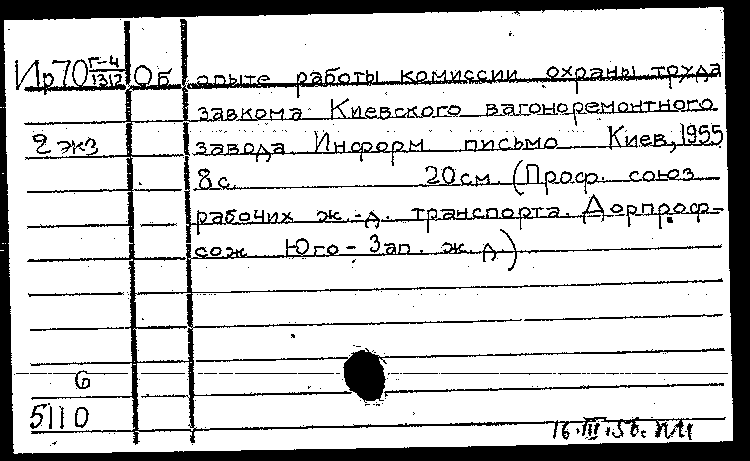 Ир70 Г-4/1312 Об опыте работы комиссии охраны труда
завкома Киевского вагоноремонтного
2 экз завода. Информ письмо Киев, 1955
8с. 20см. (Проф. союз
рабочих ж.-д. транспорта. Дорпроф-
сож Юго-Зап. ж.д.)
6
5110
16.III.56.